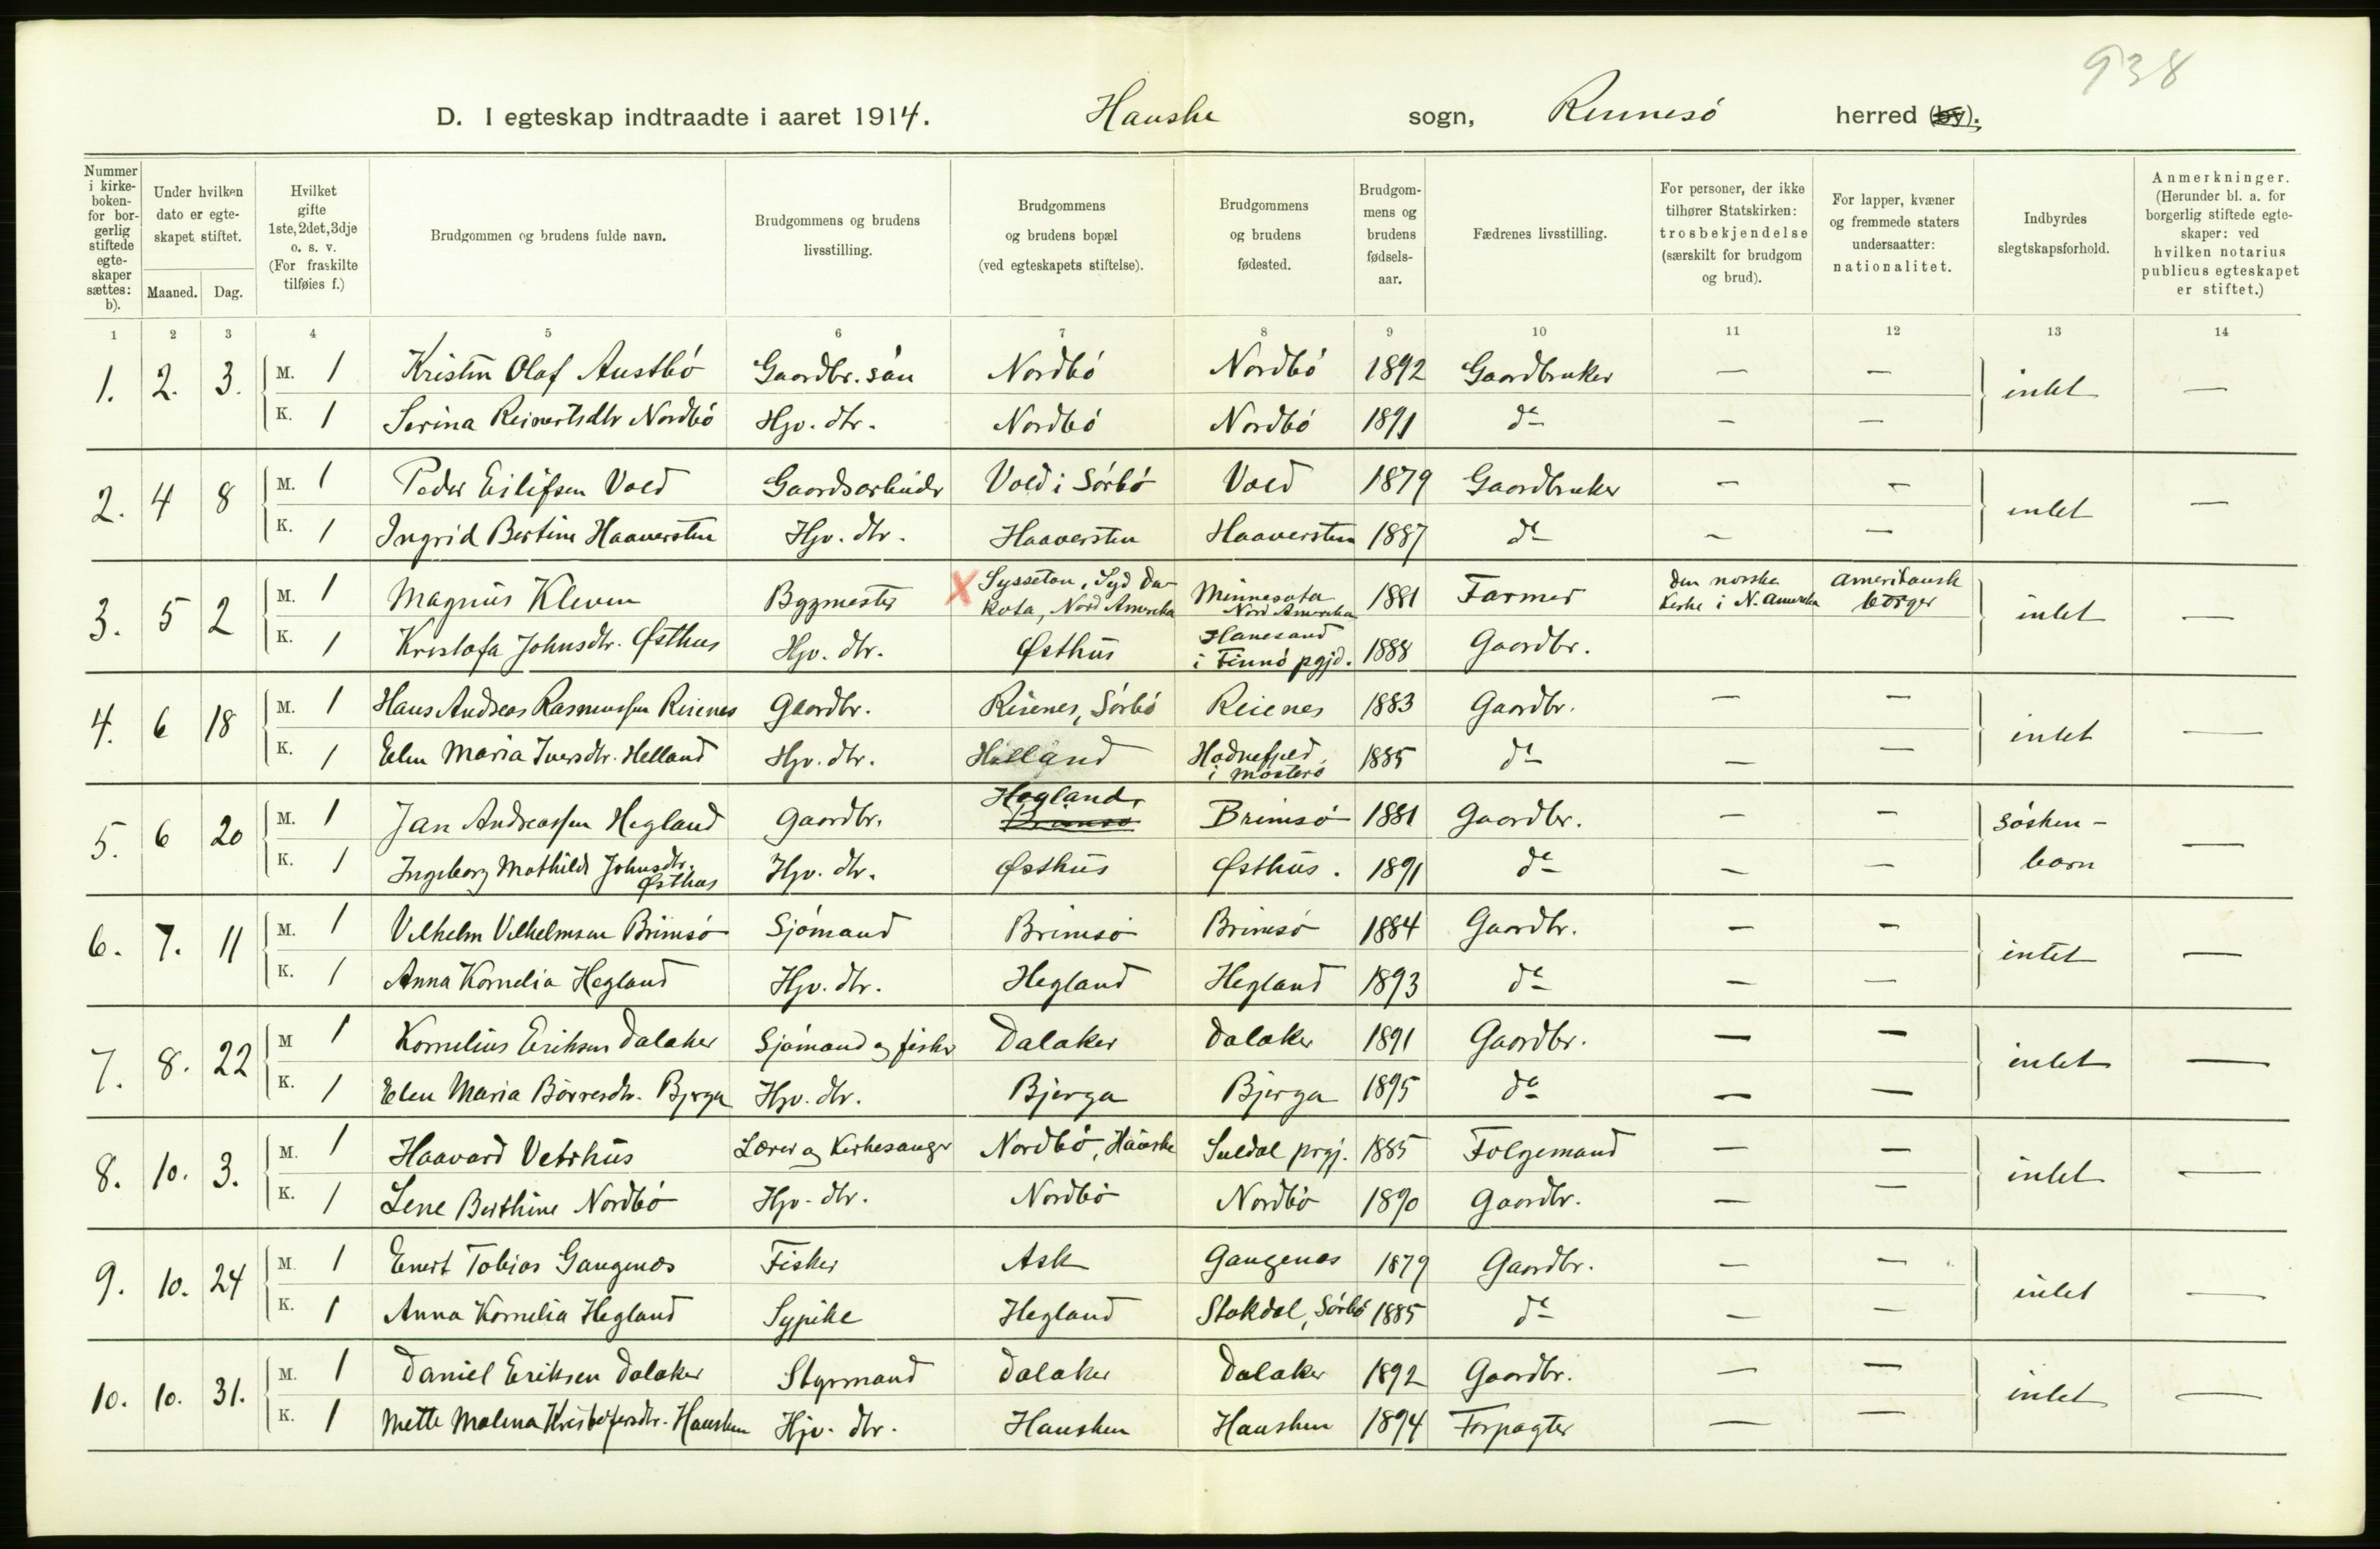 938
D. I egteskap indtraadte i aaret 1914. Hauske sogn, Rennesö herred (by).
Nummer i kirkeboken for borgerlig stiftede egteskaper sættes: b).
Under hvilken dato er egteskapet stiftet.
Maaned. Dag.
Hvilket gifte 1ste, 2det, 3dje o. s. v. (For fraskilte tilføies f.)
Brudgommen og brudens fulde navn.
Brudgommens og brudens livsstilling.
Brudgommens og brudens bopæl (ved egteskapets stiftelse).
Brudgommens og brudens fødested.
Brudgommens og brudens fødselsaar.
Fædrenes livsstilling.
For personer, der ikke tilhører Statskirken: trosbekjendelse (særskilt for brudgom og brud).
For lapper, kvæner og fremmede staters undersaatter: nationalitet.
Indbyrdes slegtskapsforhold.
Anmerkninger. (Herunder bl. a. for borgerlig stiftede egteskaper: ved hvilken notarius publicus egteskapet er stiftet.)
1 2 3 4 5 6 7 8 9 10 11 12 13 14
1. 2. 3. M. 1 Kristen Olaf Austbó Gaardbr. sön Nordbó Nordbó 1892 Gaardbruker — — intet —
K. 1 Serina Reinertsdtr Nordbó Hjv. dtr. Nordbó Nordbó 1891 do — —
2. 4 8 M. 1 Peder Eilifsen Vold Gaardsarbeider Vold i Sórbó Vold 1879 Gaardbruker — — intet —
K. 1 Ingrid Bertine Haaversten Hjv. dtr. Haaversten Haaversten 1887 do — —
3. 5 2 M. 1 Magnus Kleven Bygmester X Sysseton, Syd Dakota, Nord Amerika Minnesota Nord Amerika 1881 Farmer Den norske Kirke i N. Amerika Amerikansk borger intet —
K. 1 Kristofa Johnsdtr. Østhus Hjv. dtr. Østhus Hanesand i Finnó pgjd. 1888 Gaardbr.
4. 6 18 M. 1 Hans Andreas Rasmussen Reienes Gaardbr. Reienes, Sórbó Reienes 1883 Gaardbr. — — intet —
K. 1 Elen Maria Iversdtr. Helland Hjv. dtr. Helland Hodnefjeld i Mosteró 1885 do — —
5. 6 20 M. 1 Jan Andreassen Hegland Gaardbr. Hegland, Brimsó Brimsó 1881 Gaardbr. — — sósken-barn —
K. 1 Ingeborg Mathilde Johnsdtr. Østhus Hjv. dtr. Østhus Østhus. 1891 do — —
6. 7. 11 M. 1 Vilhelm Vilhelmsen Brimsó Sjómand Brimsó Brimsó 1884 Gaardbr. — — intet —
K. 1 Anna Kornelia Hegland Hjv. dtr. Hegland Hegland 1893 do — —
7. 8. 22 M 1 Kornelius Eriksen Dalaker Sjómand og fisker Dalaker Dalaker 1891 Gaardbr. — — intet —
K. 1 Elen Maria Börresdtr. Bjerga Hjv. dtr. Bjerga Bjerga 1895 do — —
8. 10. 3. M. 1 Haavard Vetrhus Lærer og Kirkesanger Nordbó, Hauske Suldal prgj. 1885 Folgemand — — intet —
K. 1 Lene Berthine Nordbó Hjv. dtr. Nordbó Nordbó 1890 Gaardbr. — —
9. 10. 24 M. 1 Enert Tobias Gangenæs Fisker Ask Gangenæs 1879 Gaardbr. — — intet —
K. 1 Anna Kornelia Hegland Sypike Hegland Stokdal, Sórbó 1885 do — —
10. 10. 31. M. 1 Daniel Eriksen Dalaker Styrmand Dalaker Dalaker 1892 Gaardbr. — — intet —
K. 1 Mette Malena Kristofersdtr. Hausken Hjv. dtr. Hausken Hausken 1894 Forpagter — —